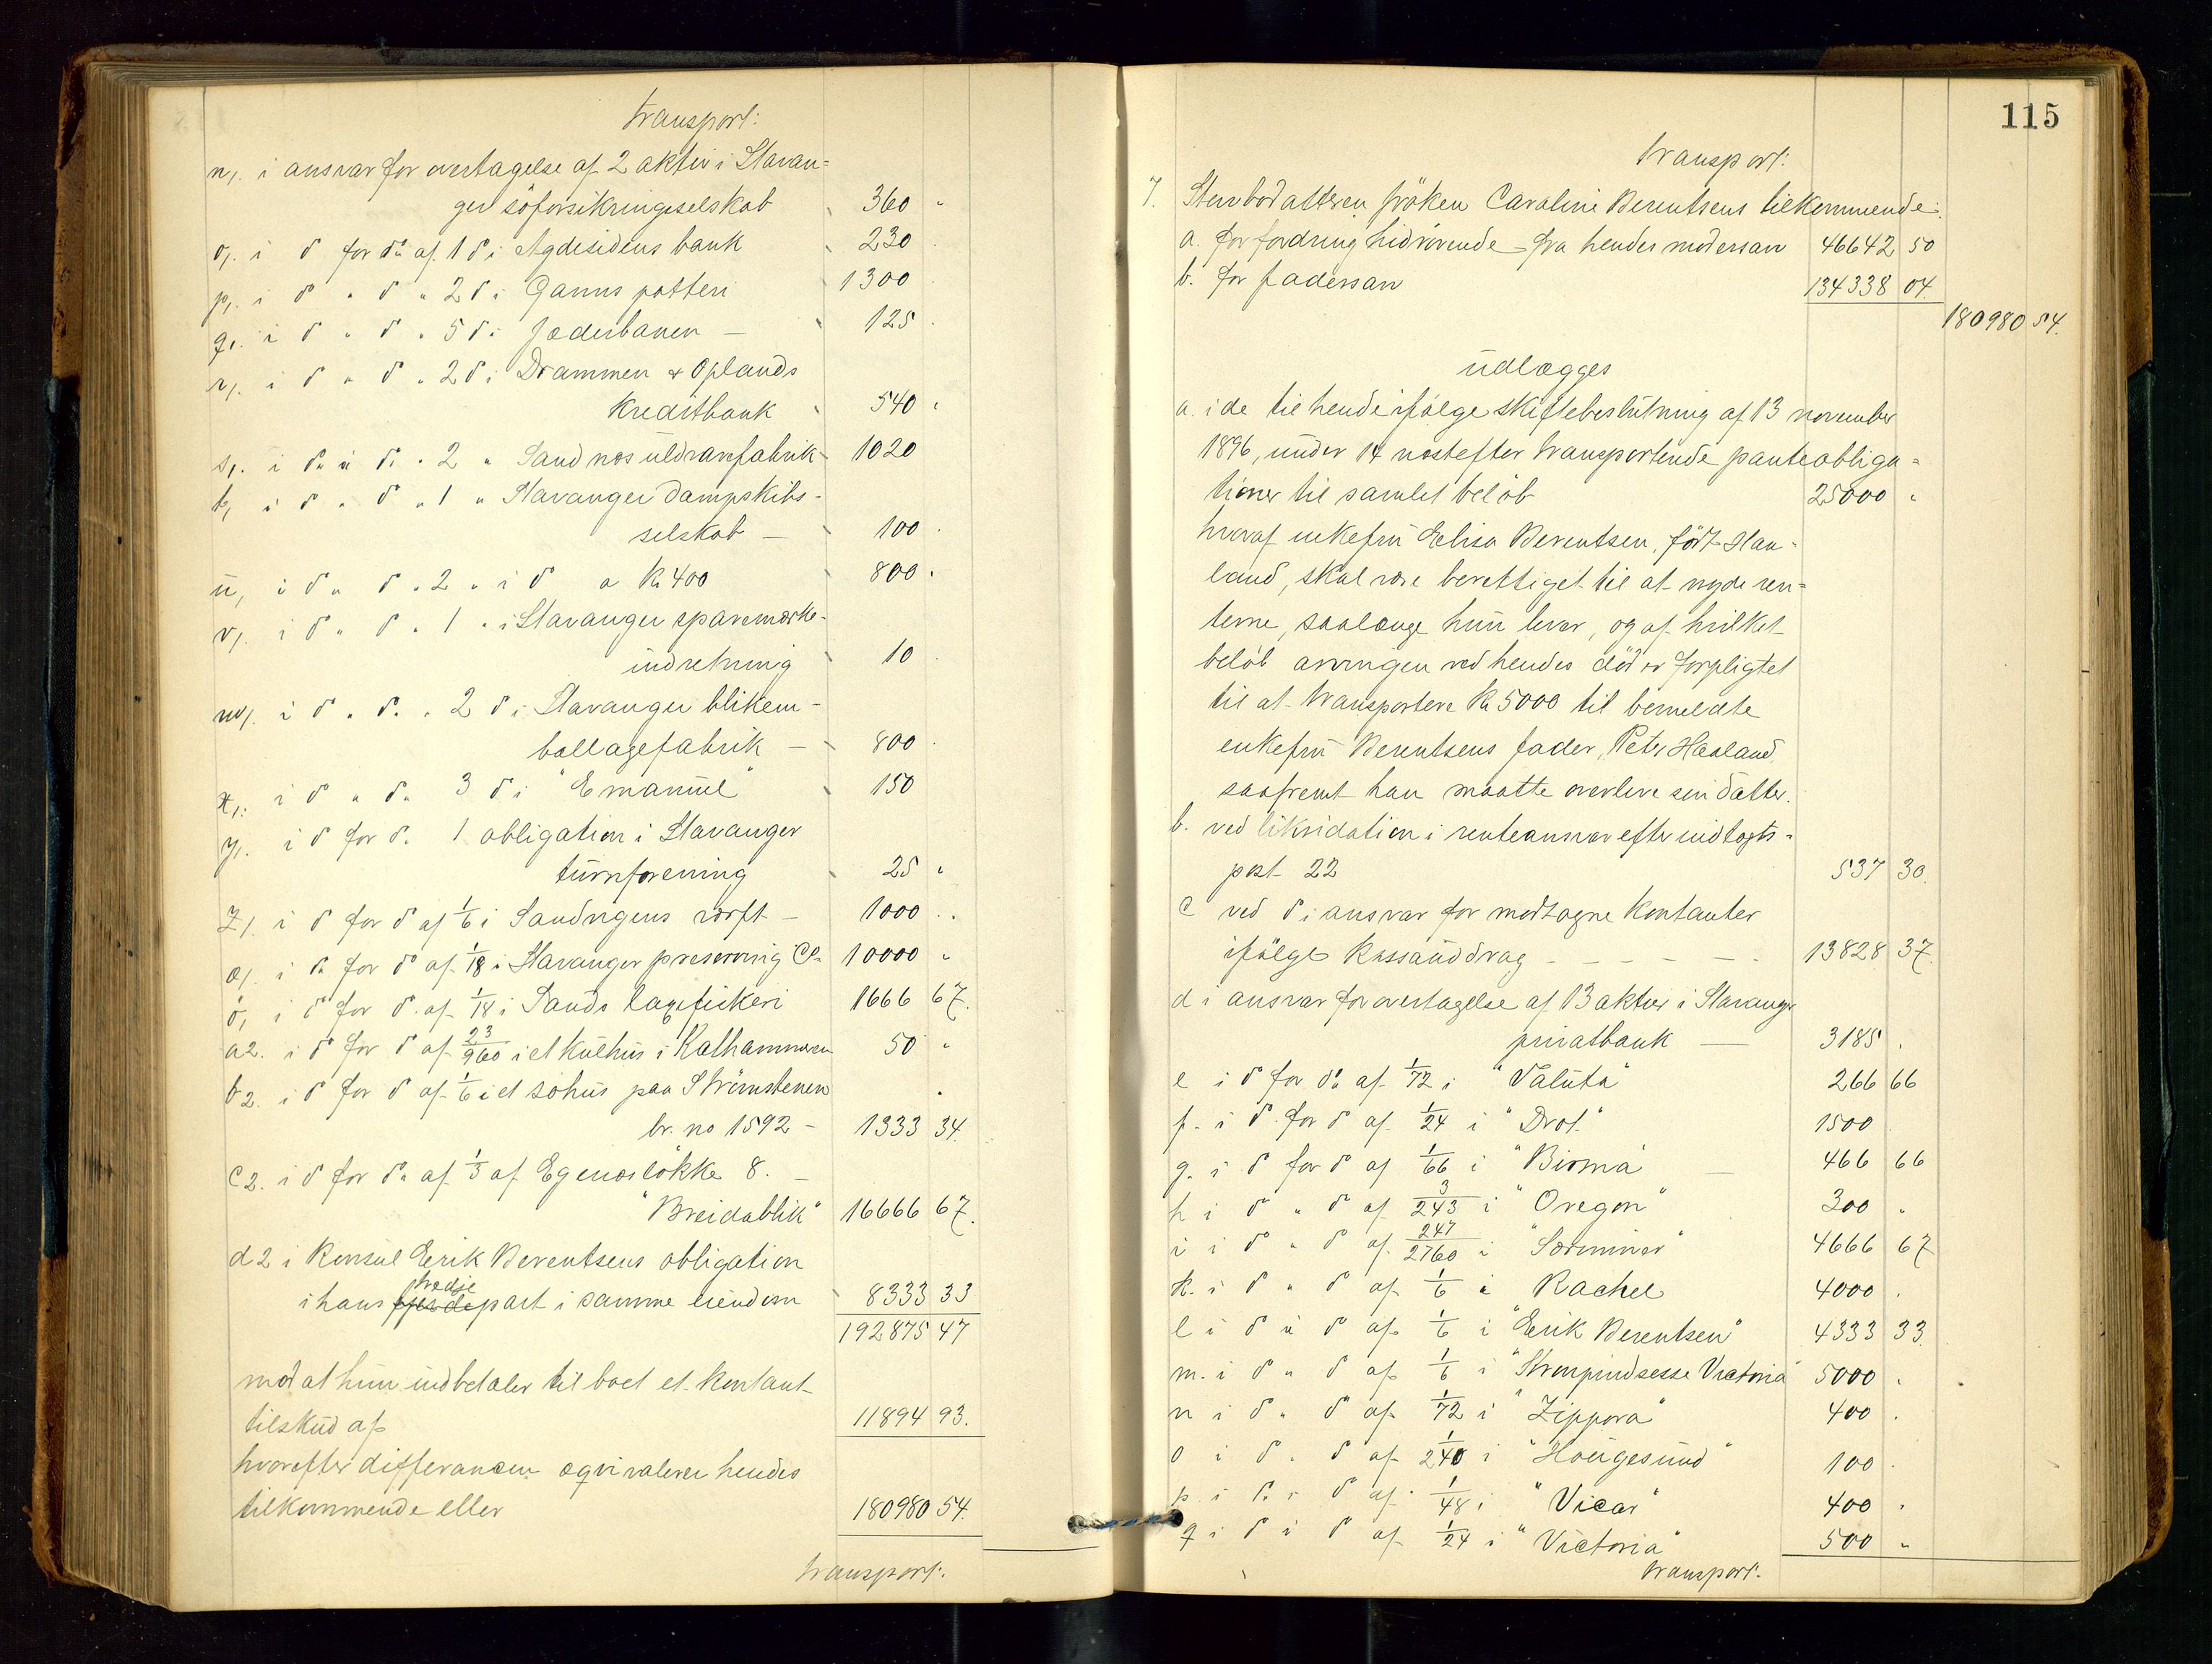 transport:
n). i ansvar for overtagelse af 2 aktier i Stavan=
ger söforsikringsselskab 360 "
o). i do for do af 1 do i Agdesidens bank 230 .
p). i do " do " 2 do i Ganns potteri 1300 .
q). i do " do " 5 do i Jæderbanen — 125 .
r). i do " do " 2 do i Drammen & Oplands
Kreditbank 540 "
s). i do " do " 2 " Sandnæs uldvarefabrik 1020
t). i do " do " 1 " Stavanger dampskibs-
selskab — 100 .
u). i do " do " 2 " i do a Kr 400 800 .
v). i do " do " 1 " i Stavanger sparemærke-
indretning 10 .
w). i do " do " 2 do i Stavanger blikem-
ballagefabrik — 800 .
x). i do " do " 3 do i "Emanuel" 150
y). i do for do 1 obligation i Stavanger
turnforening 25 "
z). i do for do af 1/6 i Sandvigens værft — 1000 . .
æ). i do for do af 1/18 i Stavanger preserving Co. 10000 "
ö). i do for do af 1/18 i Sands laxefiskeri 1666 67.
a2. i do for do af 23/960 i et kulhus i Kalhammeren 50 "
b2. i do for do af 1/6 i et söhus paa Strömstenen
br. no 1592 — 1333 34.
c2. i do for do af 1/3 af Egenæslökke 8. —
"Breidablik" 16666 67.
d2 i Konsul Erik Berentsens obligation
tredje
i hans fjerdepart i samme eiendom 8333 33
192875 47
mod at hun indbetaler til boet et kontant
tilskud af 11894 93.
hvorefter differancen æqvivalerer hendes
tilkommende eller 180980 54.
transport:
115
transport:
7. Stervbodatteren fröken Caroline Berentsens tilkommende:
a. for fordring hidrörende fra hendes mödrearv 46642 50
b. for fadersarv 134338 04.
180980 54.
udlægges
a. i de til hende ifölge skiftebeslutning af 13 november
1896, under 14 næstefter transporterede panteobliga=
tioner til samlet belöb 25000 "
hvoraf enkefru Elisa Berentsen, födt Haa-
land, skal være berettiget til at nyde ren=
terne, saalænge hun lever, og af hvilket
belöb arvingen ved hendes död er forpligtet
til at transportere Kr 5000 til bemeldte
enkefru Berentsens fader, Peter Haaland,
saafremt han maatte overleve sin datter.
b. ved likvidation i renteansvar efter indtægts=
post 22 537 30.
c ved do i ansvar for modtagne kontanter
ifölge Kassauddrag - - - - - - 13828 37.
d i ansvar for overtagelse af 13 aktier i Stavanger
privatbank — 3185 .
e i do for do af 1/72 i "Valuta" 266 66
f. i do for do af 1/24 i "Drot" 1500
g. i do for do af 1/66 i "Birma" — 466 66
h i do " do af 3/243 i "Oregon" 300 "
i i do " do af 247/2760 i "Sæmmer" 4666 67
k. i do " do af 1/6 i Rachel 4000 .
l i do " do af 1/6 i "Erik Berentsen" 4333 33.
m. i do " do af 1/6 i "Kronprindsesse Victoria" 5000 .
n i do " do af 1/72 i "Zippora" 400 .
o i do " do af 1/240 i "Haugesund" 100 .
p i do " do af 1/48 i "Vicar" 400 .
q i do " do af 1/24 i "Victoria" 500 "
transport: